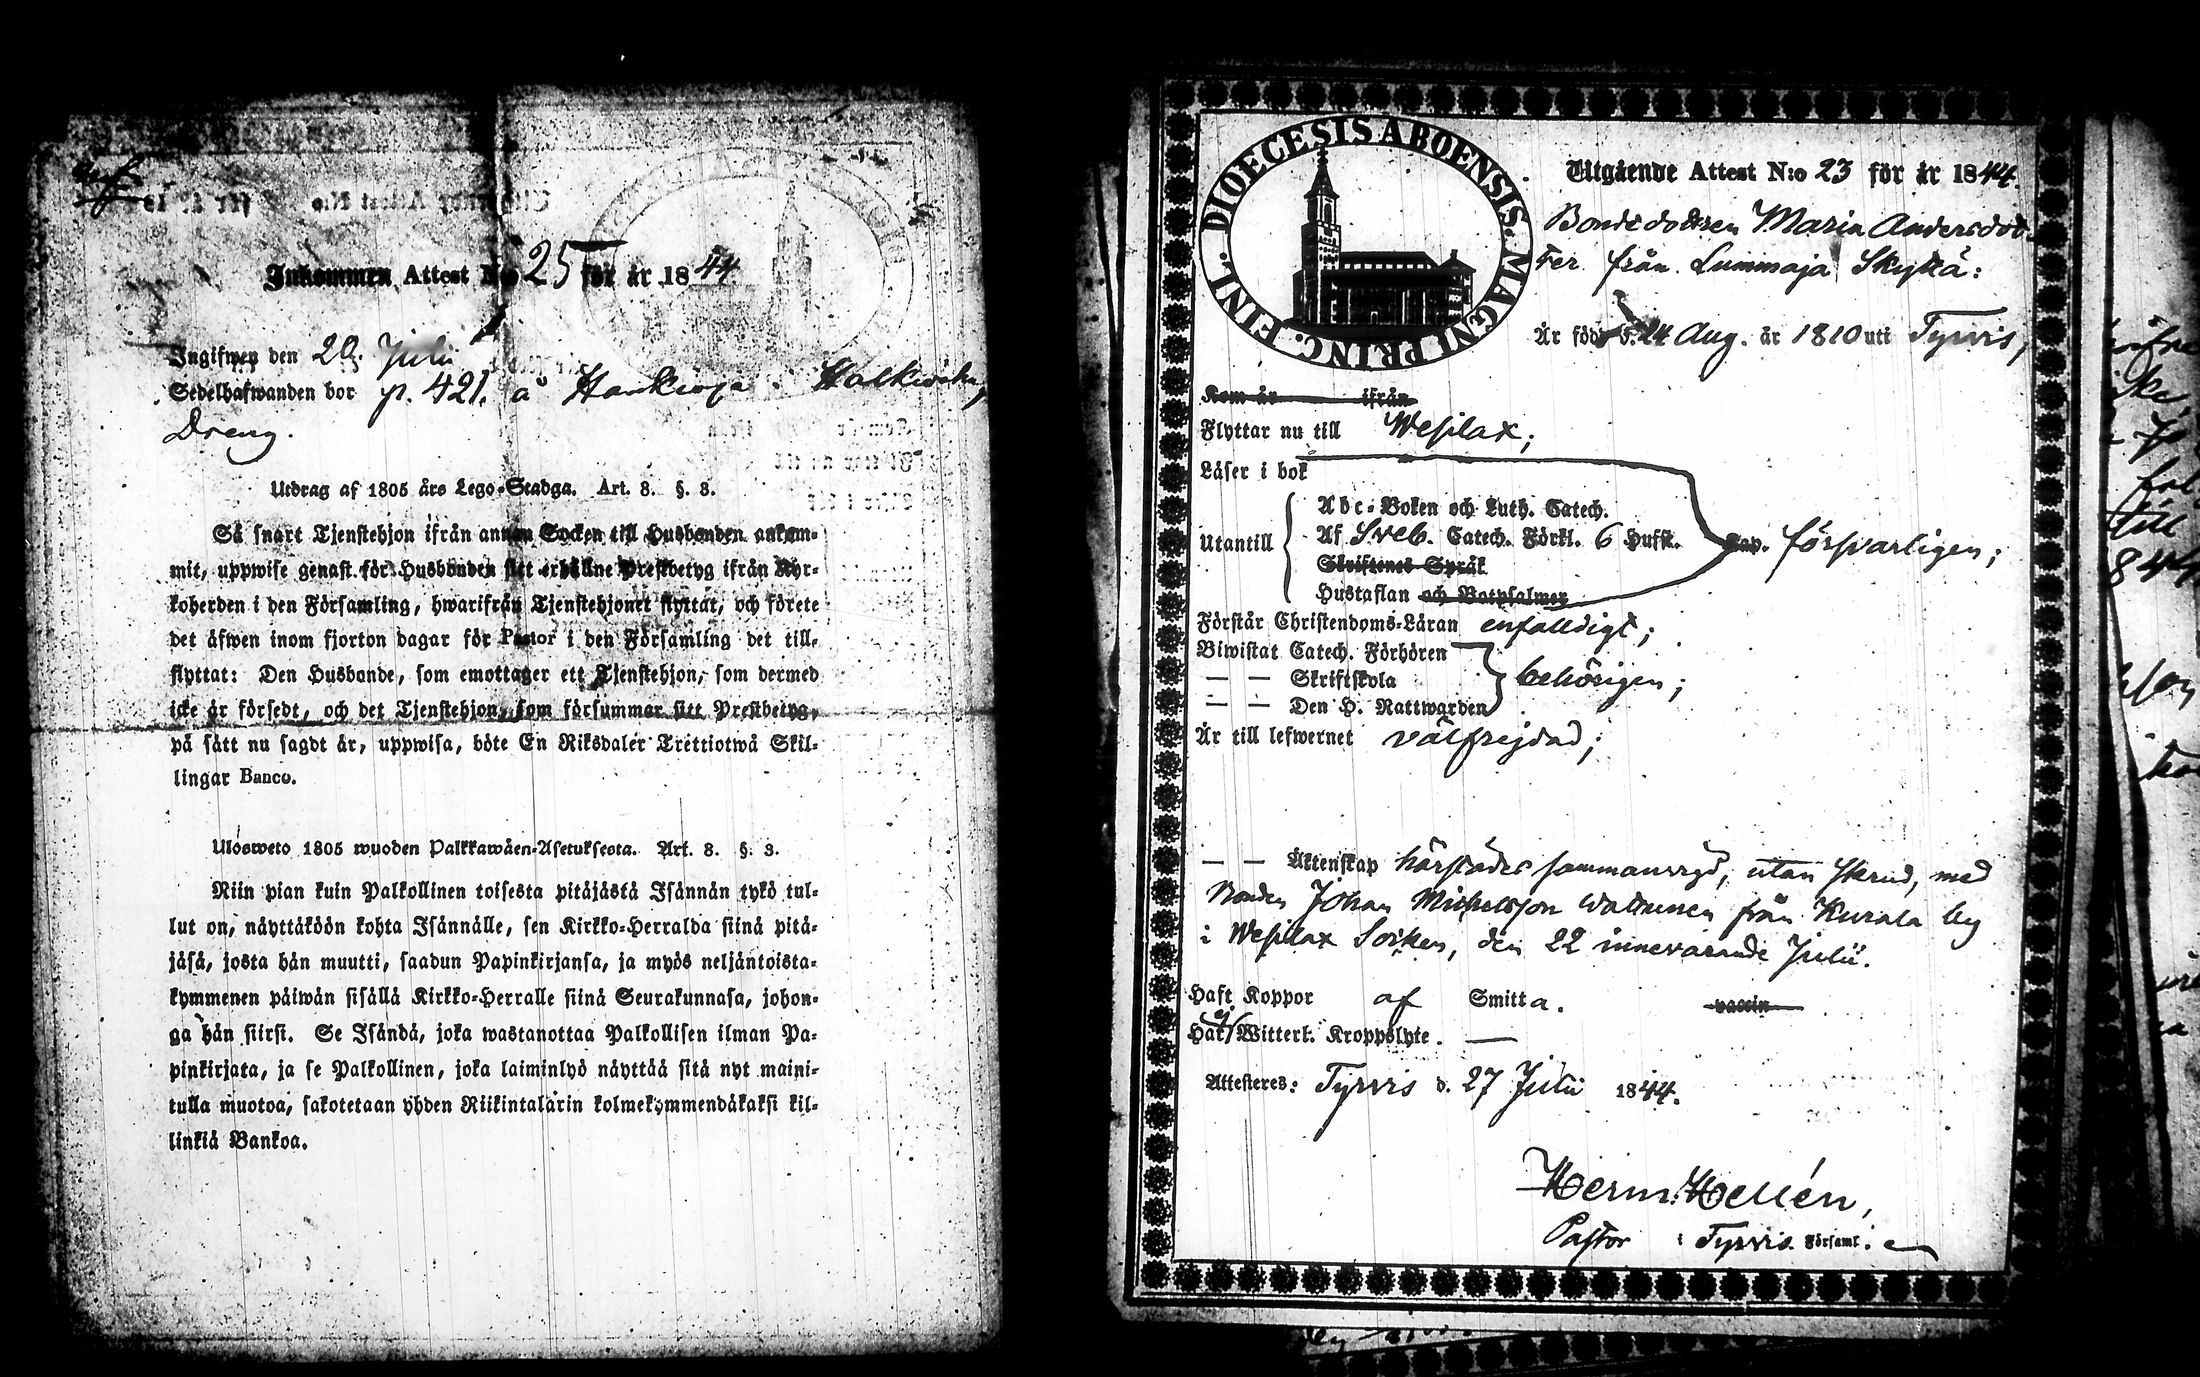 Inkommen Attest N:o 25 för år 1844
Ingifwen den 20. Julii
Sedelhafwanden bor p. 421. å
Dreng.
Utdrag af 1805 års Lego-Stadga. Art. 8. §. 3.
Så snart Tjenstehjon ifrån annan Socken till Husbonden ankom-
mit, uppwise genast för Husbonden sitt erhållne Prestbetyg ifrån Kyr-
koherden i den Församling, hwarifrån Tjenstehjonet flyttat, och förete
det äfwen inom fjorton dagar för Pastor i den Församling det till-
flyttat: Den Husbonde, som emottager ett Tjenstehjon, som dermed
icke är försedt, och det Tjenstehjon, som försummar sitt Prestbetyg,
på sätt nu sagdt är, uppwisa, böte En Riksdaler Trettiotwå Skil-
lingar Banco.
Ulosweto 1805 wuoden Palkkawäen-Asetuksesta. Art. 8. §. 3.
Niin pian kuin Palkollinen toisesta pitäjästä Isännän tykö tul-
lut on, näyttäköön kohta Isännälle, sen Kirkko-Herralda siinä pitä-
jäsä, josta hän muutti, saadun Papinkirjansa, ja myös neljäntoista-
kymmenen päiwän sisällä Kirkko-Herralle siinä Seurakunnasa, johon-
ga hän siirsi. Se Isändä, joka wastanottaa Palkollisen ilman Pa-
pinkirjata, ja se Palkollinen, joka laiminlyö näyttää sitä nyt maini-
tulla muotoa, sakotetaan yhden Riikintalarin kolmekymmendäkaksi kil-
linkiä Bankoa.
DIOECESIS ABOENSIS. MAGNI PRINC. FINL.
Utgående Attest N:o 23 för år 1844.
Bondedottren Maria Andersdot-
ter från Lummaja Skyttä:
Är född d. 24 Aug. år 1810 uti Tyrvis,
Kom år ifrån
Flyttar nu till Wesilax;
Läser i bok
Utantill
Abc-Boken och Luth. Catech.
Af Sveb. Catech. Förkl. 6 Hufst. Cap. försvarligen;
Skriftenes Språk
Hustaflan och Botpsalmer
Förstår Christendoms-Läran enfalldigt;
Biwistat Catech. Förhören
— — Skriftskola behörigen;
— — Den H. Nattwarden
Är till lefwernet välfrejdad;
— — Äktenskap härstädes sammanvigd, utan skrud, med
Bonden Johan Michelsson från Kurala by
i Wesilax Socken, den 22 innevarande Julii.
Haft Koppor af Smitta. vaccin
Har ej Witterl. Kroppslyte. —
Attesteres: Tyrvis d. 27 Julii 1844.
Herm. Hellén,
Pastor i Tyrvis Församl.